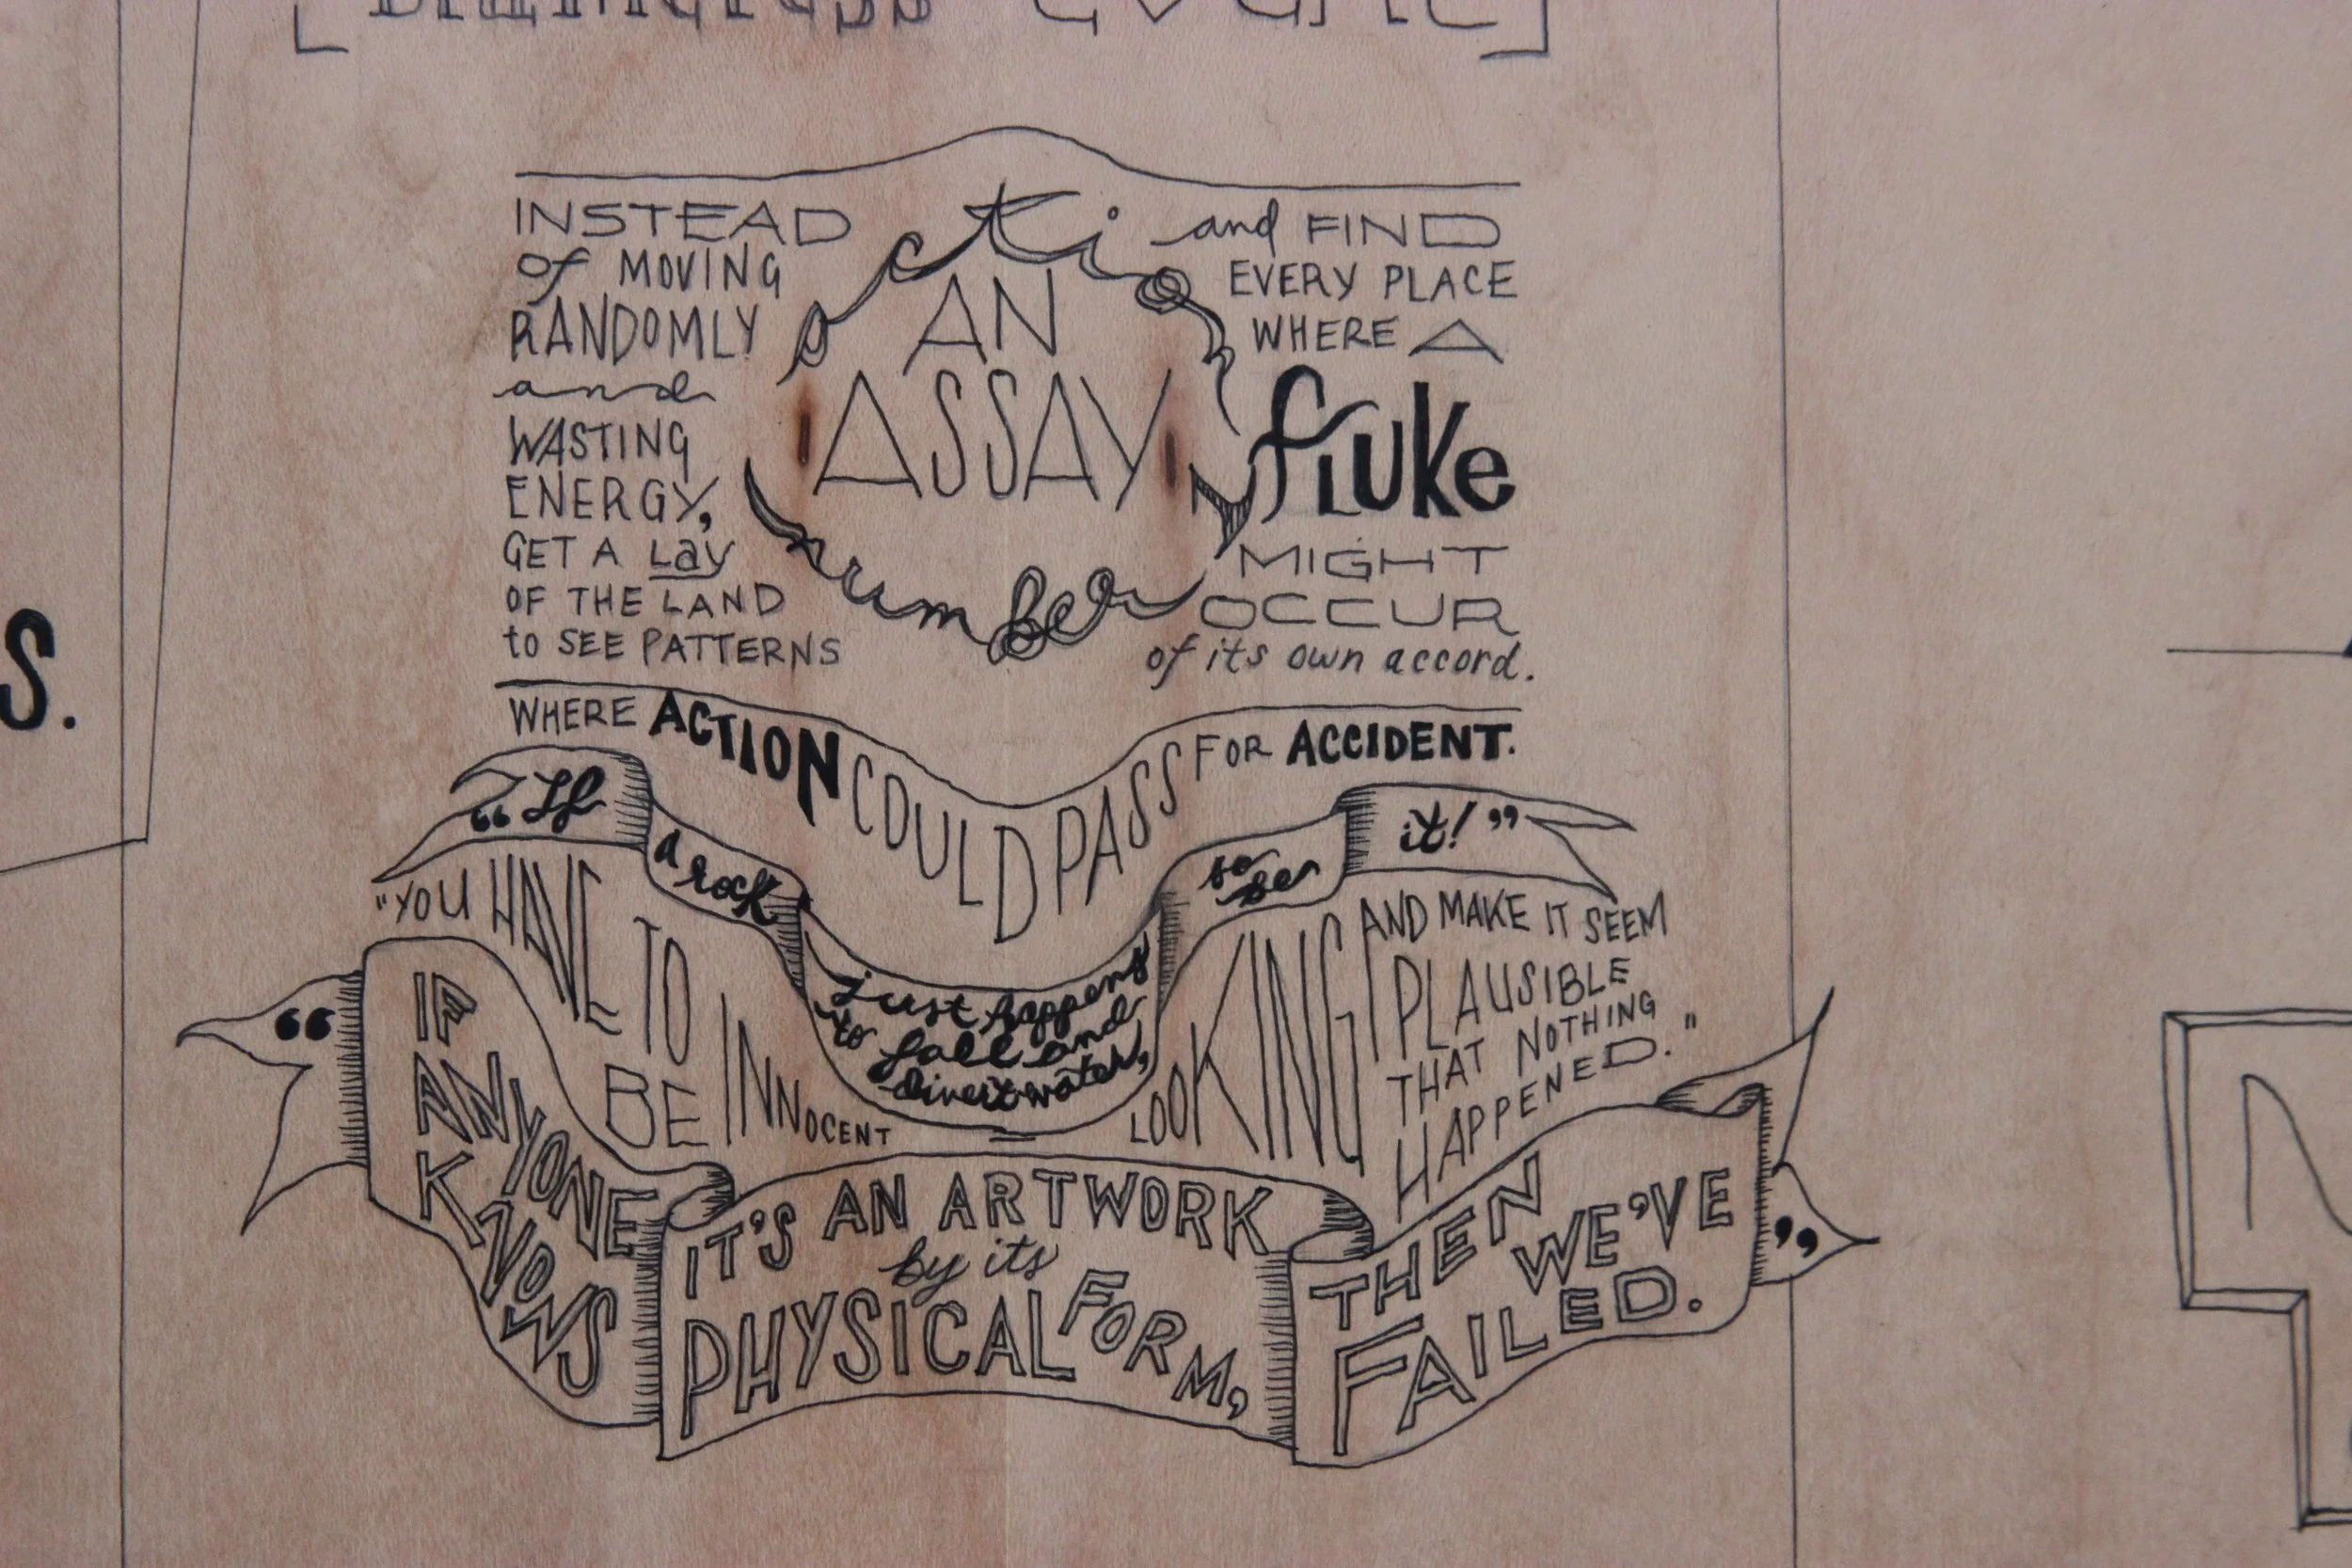 INSTEAD
of MOVING
RANDOMLY
and
WASTING
ENERGY,
GET A Lay
OF THE LAND
to SEE PATTERNS
action
AN
ASSAY
number
and FIND
EVERY PLACE
WHERE A
fluke
MIGHT
OCCUR
of its own accord.
WHERE ACTION COULD PASS FOR ACCIDENT.
“If
a rock
just happens
to fall and
divert water,
so be
it!”
"YOU HAVE TO
BE INNOCENT
LOOKING
AND MAKE IT SEEM
PLAUSIBLE
THAT NOTHING
HAPPENED."
“
IF
ANYONE
KNOWS
IT'S AN ARTWORK
by its
PHYSICAL FORM,
THEN
WE'VE
FAILED.
”
S.